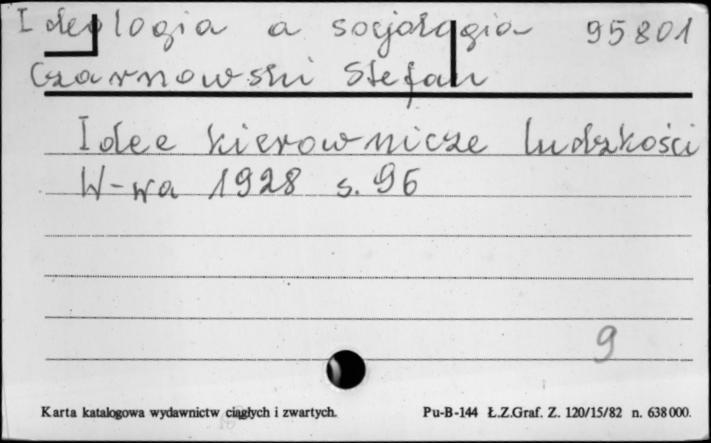 Ideologia a socjologia 95801
Czarnowski Stefan
Idee kierownicze ludzkości
W-wa 1928 s. 96
9
Karta katalogowa wydawnictw ciągłych i zwartych. Pu-B-144 Ł.Z.Graf. Z. 120/15/82 n. 638000.